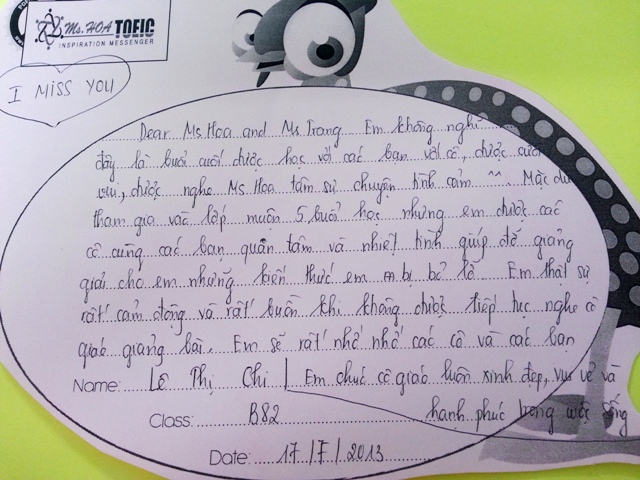 Ms. HOA TOEIC
INSPIRATION MESSENGER
I MISS YOU
Dear Ms Hoa and Ms Trang. Em không nghĩ
đây là buổi cuối được học với các bạn với cô, được cười
vui, được nghe Ms Hoa tâm sự chuyện tình cảm ^^. Mặc dù
tham gia vào lớp muộn 5 buổi học nhưng em được các
cô cùng các bạn quan tâm và nhiệt tình giúp đỡ giảng
giải cho em những kiến thức em bị bỏ lỡ. Em thật sự
rất cảm động và rất buồn khi không được tiếp tục nghe cô
giáo giảng bài. Em sẽ rất nhớ nhớ các cô và các bạn
Name: Lê Thị Chi | Em chúc cô giáo luôn xinh đẹp, vui vẻ và
Class: B82 hạnh phúc trong cuộc sống
Date: 17/7/2013